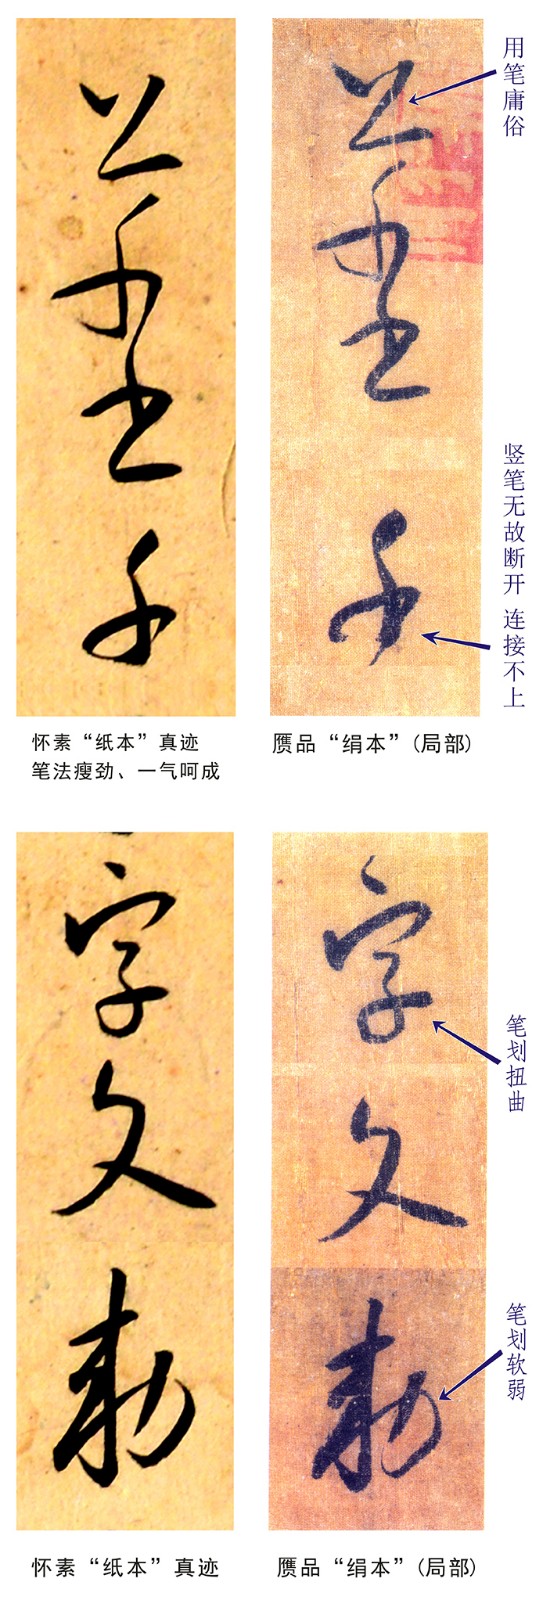 草書千
草書千
用笔庸俗
竖笔无故断开 连接不上
怀素“纸本”真迹
笔法瘦劲、一气呵成
赝品“绢本”(局部)
字文勅
字文勅
笔划扭曲
笔划软弱
怀素“纸本”真迹
赝品“绢本”(局部)